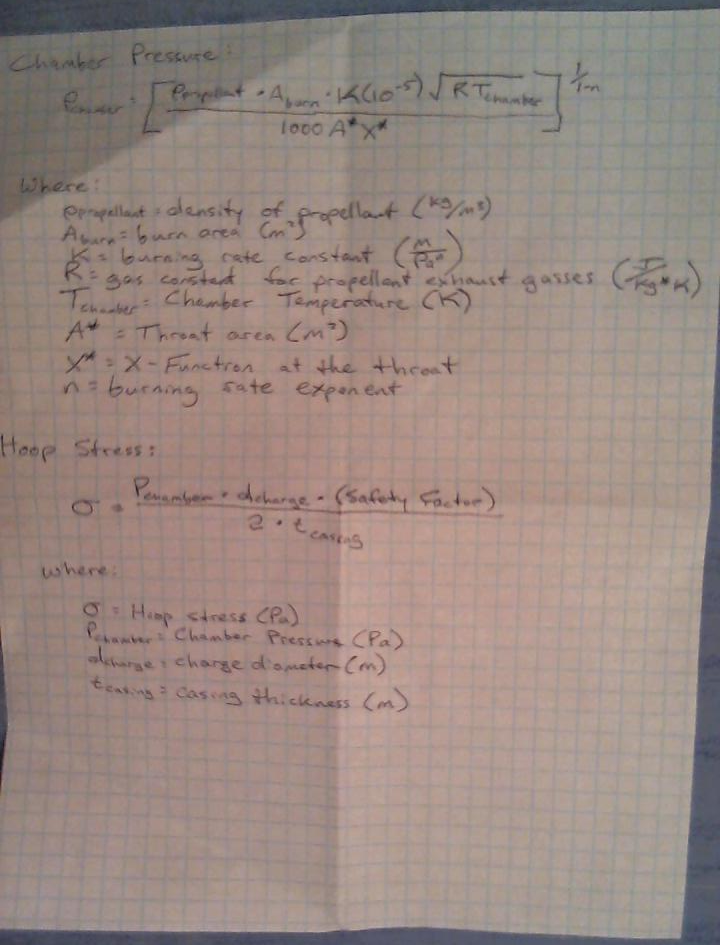 Chamber Pressure:
Pchamber = [ ρpropellant · Aburn · K(10⁻⁵) √RTchamber / 1000 A* X* ]^(1/1-n)
Where:
ρpropellant = density of propellant (kg/m³)
Aburn = burn area (m²)
K = burning rate constant (m/Paⁿ)
R = gas constant for propellent exhaust gasses (J/Kg*K)
Tchamber = Chamber Temperature (K)
A* = Throat area (m²)
X* = X-Function at the throat
n = burning rate exponent
Hoop Stress:
σ = Pchamber · dcharge · (Safety Factor) / 2 · tcasing
where:
σ = Hoop stress (Pa)
Pchamber = Chamber Pressure (Pa)
dcharge = charge diameter (m)
tcasing = casing thickness (m)